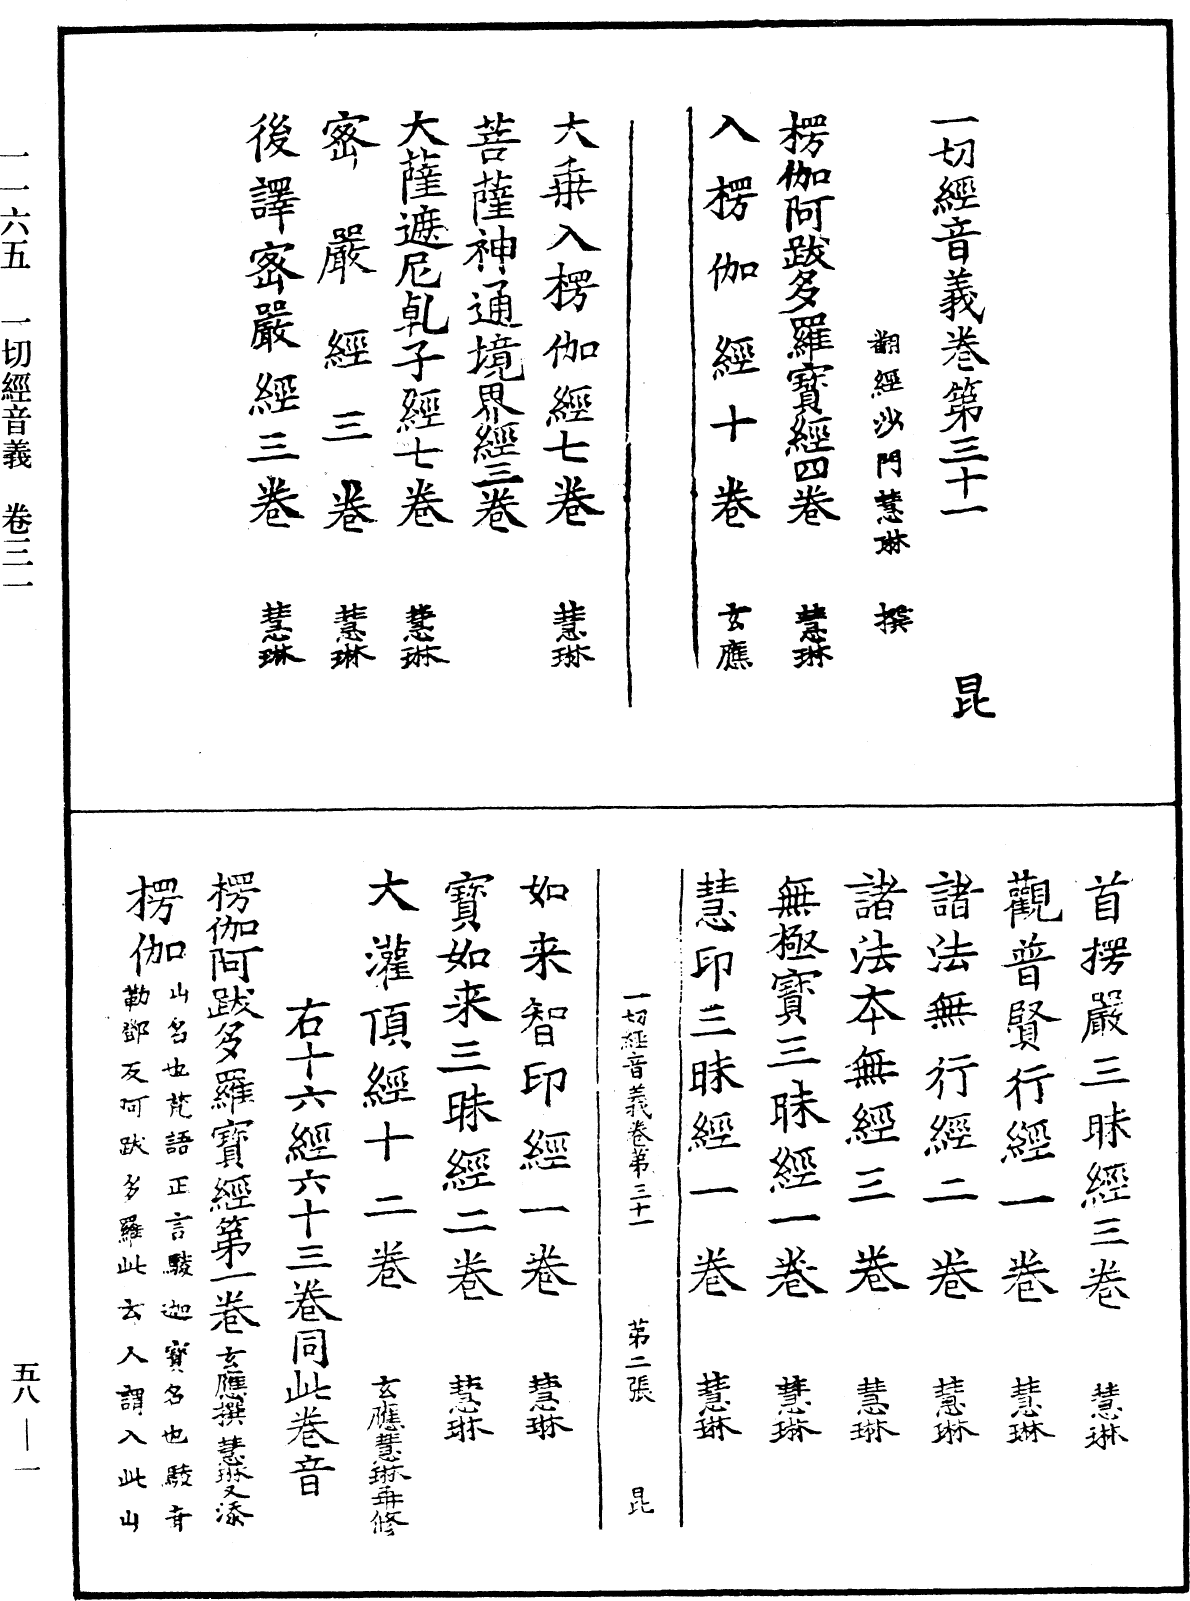 一切經音義卷第三十一 昆
翻經沙門慧琳 撰
楞伽阿跋多羅寶經四卷 慧琳
入楞伽經十卷 玄應
大乗入楞伽經七卷 慧琳
菩薩神通境界經三卷
大薩遮尼乹子經七卷 慧琳
密嚴經三卷 慧琳
後譯密嚴經三卷 慧琳
首楞嚴三昧經三卷 慧琳
觀普賢行經一卷 慧琳
諸法無行經二卷 慧琳
諸法本無經三卷 慧琳
無極寶三昧經一卷 慧琳
慧印三昧經一卷 慧琳
一切經音義卷第三十一 第二張 昆
如来智印經一卷 慧琳
寶如来三昧經二卷 慧琳
大灌頂經十二卷 玄應慧琳再修
右十六經六十三卷同此卷音
楞伽阿跋多羅寶經第一卷 玄應撰慧琳又添
楞伽 山名也梵語正言駿迦寶名也駿音
勒鄧反阿跋多羅此云入謂入此山
一一六五 一切經音義 卷三一
五八—一